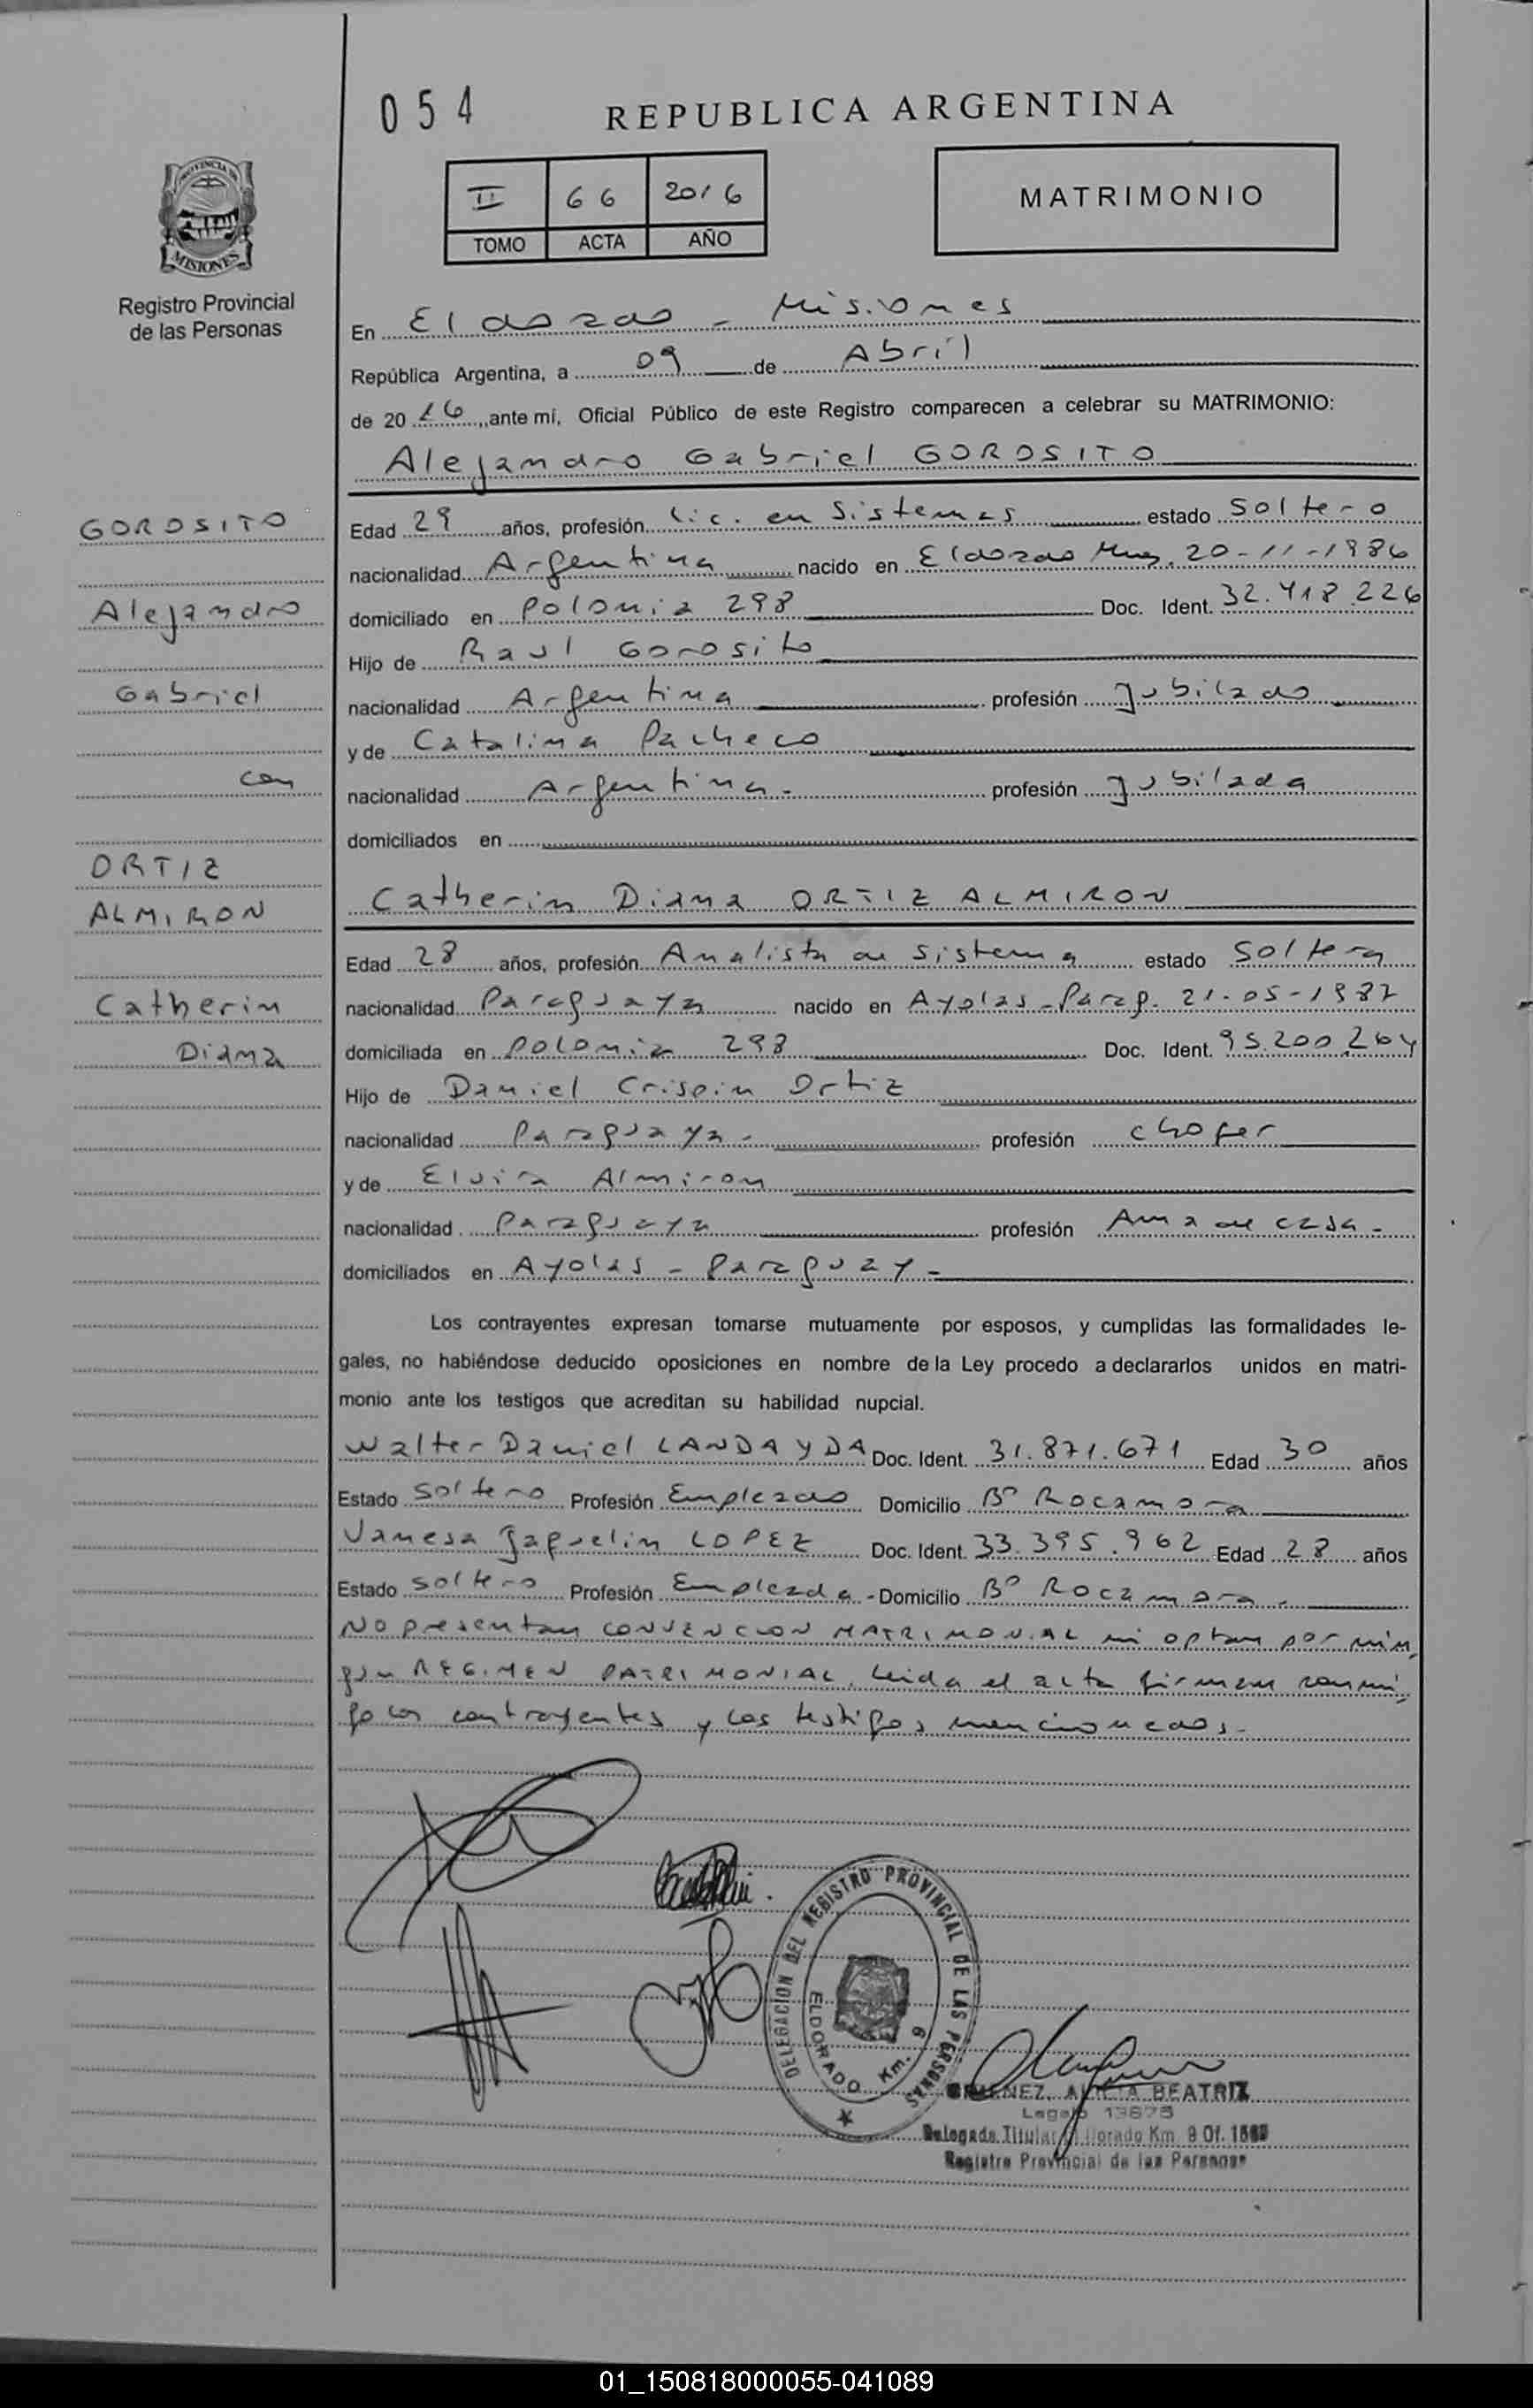 054
REPUBLICA ARGENTINA
II 66 2016
TOMO ACTA AÑO
MATRIMONIO
PROVINCIA DE
MISIONES
Registro Provincial
de las Personas
En Eldorado - Misiones
República Argentina, a 09 de Abril
de 20 16 ante mí, Oficial Público de este Registro comparecen a celebrar su MATRIMONIO:
Alejandro Gabriel GOROSITO
GOROSITO
Alejandro
Gabriel
con
ORTIZ
ALMIRON
Catherin
Diana
Edad 29 años, profesión Lic. en Sistemas estado Soltero
nacionalidad Argentina nacido en Eldorado Mnes. 20-11-1986
domiciliado en Polonia 298 Doc. Ident. 32.418.226
Hijo de Raul Gorosito
nacionalidad Argentina profesión Jubilado
y de Catalina Pacheco
nacionalidad Argentina - profesión Jubilada
domiciliados en
Catherin Diana ORTIZ ALMIRON
Edad 28 años, profesión Analista de Sistema estado Soltera
nacionalidad Paraguaya nacido en Ayolas - Parag. 21-05-1987
domiciliada en Polonia 298 Doc. Ident. 95.200.264
Hijo de Daniel Crispin Ortiz
nacionalidad Paraguaya - profesión chofer
y de Elvira Almiron
nacionalidad Paraguaya profesión Ama de casa -
domiciliados en Ayolas - Paraguay -
Los contrayentes expresan tomarse mutuamente por esposos, y cumplidas las formalidades le-
gales, no habiéndose deducido oposiciones en nombre de la Ley procedo a declararlos unidos en matri-
monio ante los testigos que acreditan su habilidad nupcial.
Walter Daniel LANDAYDA Doc. Ident. 31.871.671 Edad 30 años
Estado Soltero Profesión Empleado Domicilio Bº Rocamora
Vanesa Jaquelin LOPEZ Doc. Ident. 33.395.962 Edad 28 años
Estado soltero Profesión Empleada - Domicilio Bº Rocamora -
No presentan CONVENCION MATRIMONIAL ni optan por nin
gun REGIMEN PATRIMONIAL. Leida el acta firman conmi
go los contrayentes y los testigos mencionados.-
DELEGACION DEL REGISTRO PROVINCIAL DE LAS PERSONAS
ELDORADO Km. 9
GIMENEZ, BEATRIZ
Legajo 13875
Delegada Titular Eldorado Km. 9 Of.
Registro Provincial de las Personas
01_150818000055-041089